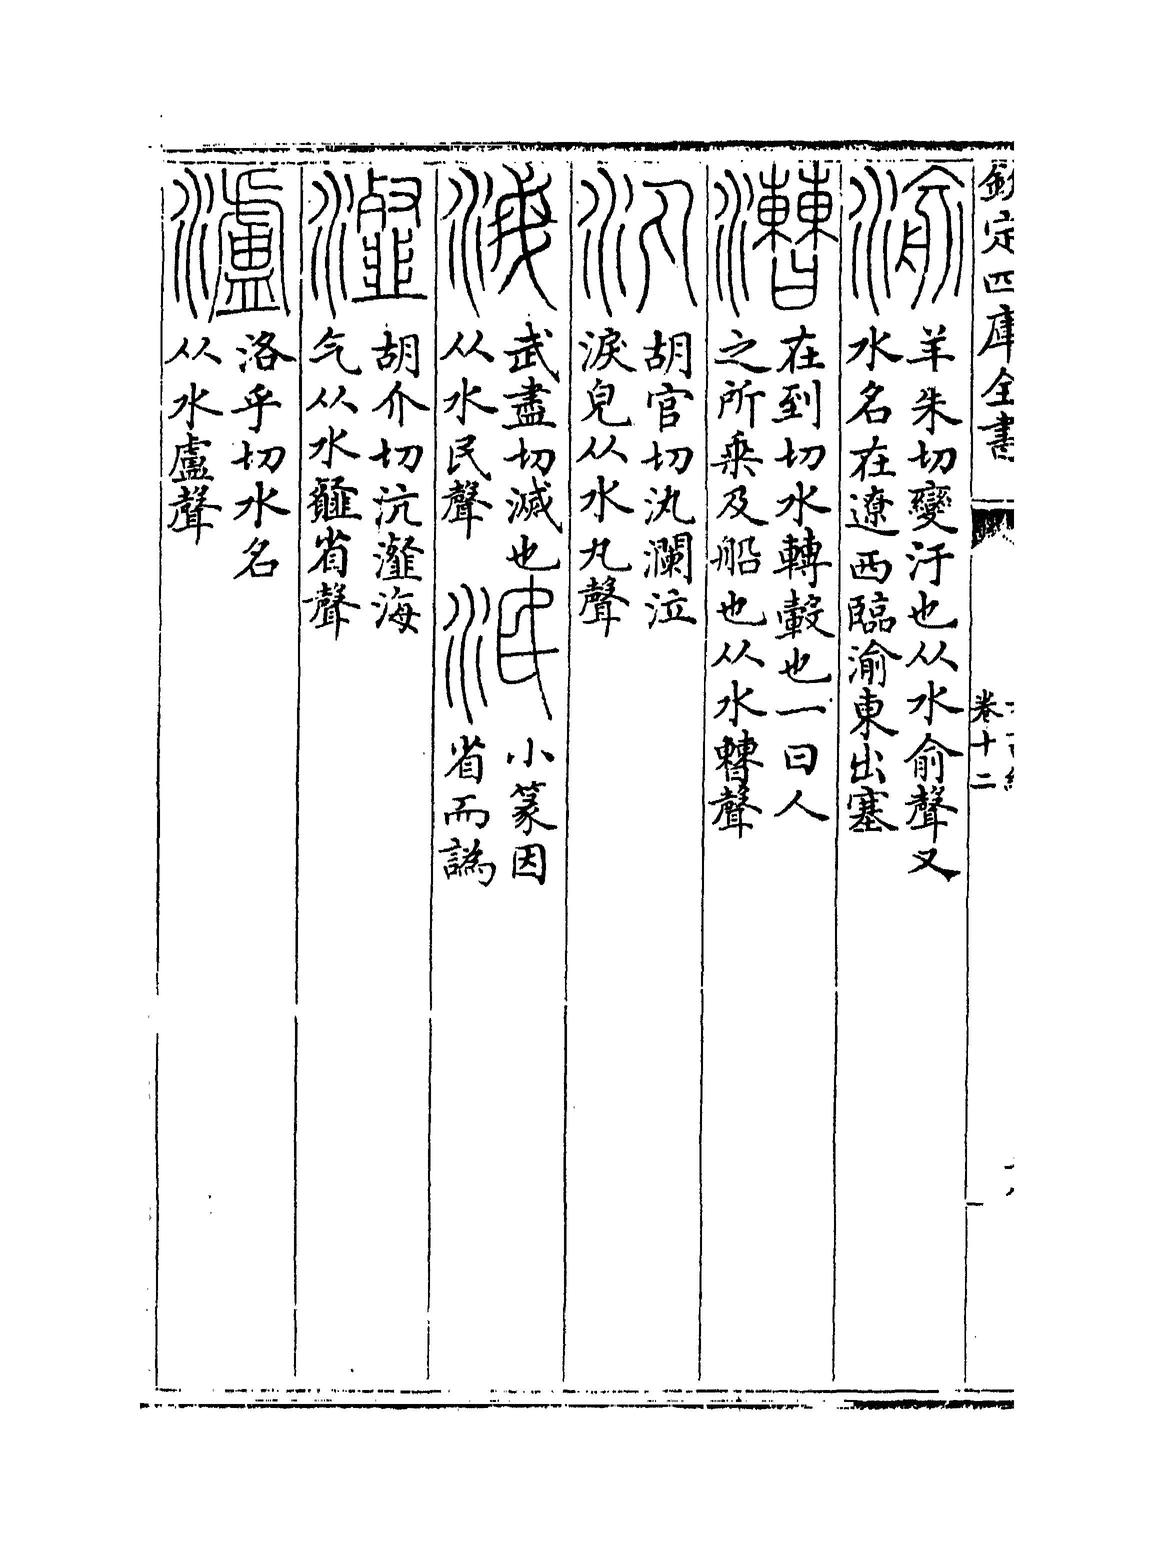 欽定四庫全書
卷十二
渝
羊朱切變汙也从水俞聲又
水名在遼西臨渝東出塞
漕
在到切水轉轂也一曰人
之所乘及船也从水𣍘聲
汍
胡官切汍瀾泣
淚皃从水丸聲
武盡切滅也
从水民聲
泯
小篆因
省而譌
瀣
胡介切沆瀣海
气从水䪥省聲
瀘
洛乎切水名
从水盧聲